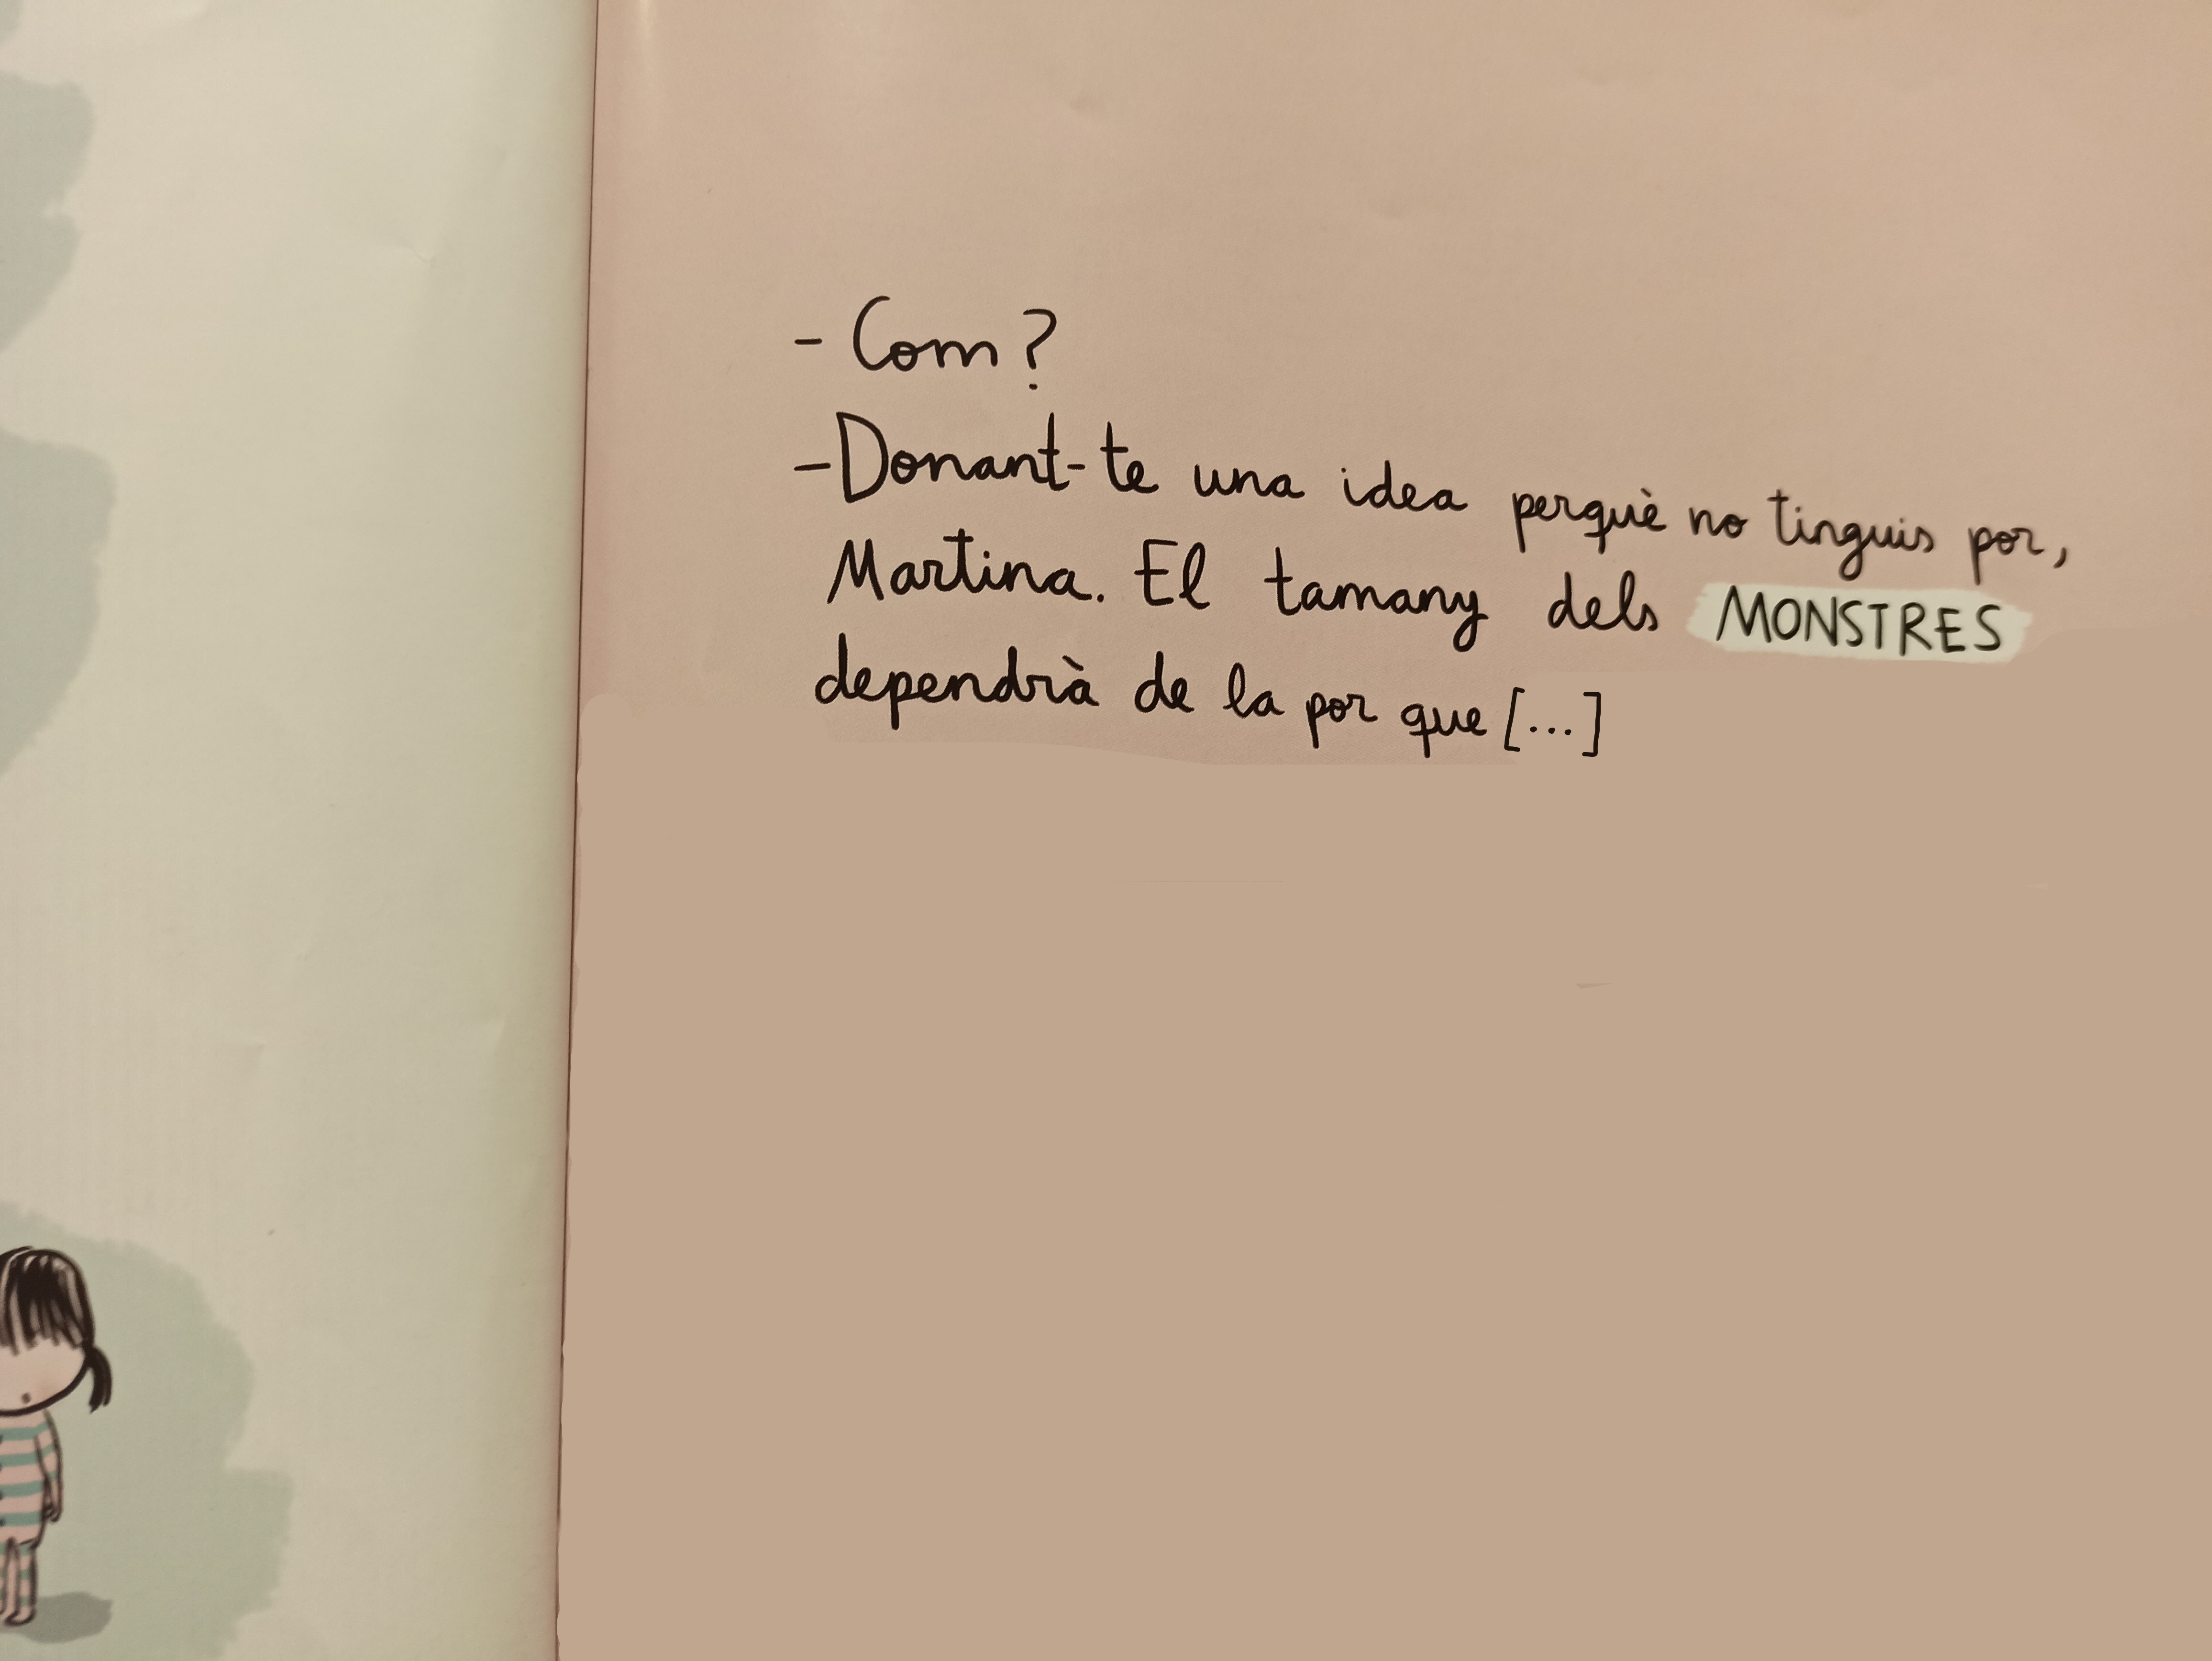 - Com?
- Donant-te una idea perquè no tinguis por,
Martina. El tamany dels MONSTRES
dependrà de la por que [...]